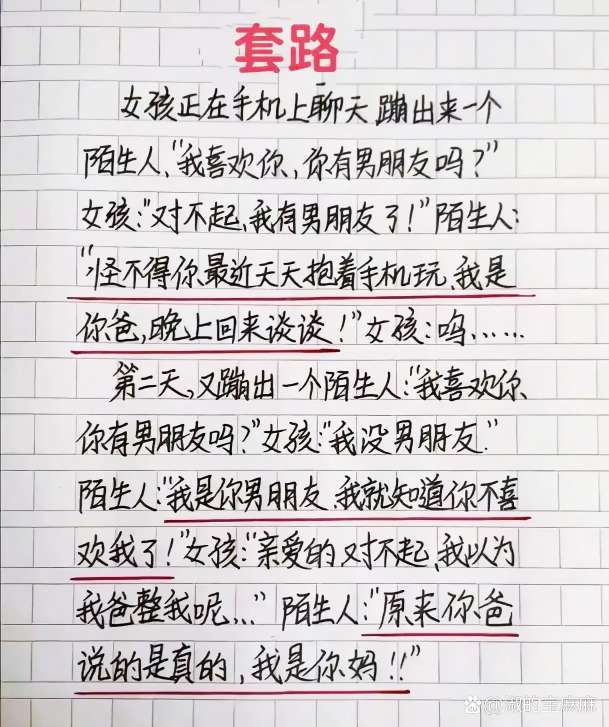 套路
女孩正在手机上聊天,蹦出来一个
陌生人,“我喜欢你,你有男朋友吗?”
女孩:“对不起,我有男朋友了!”陌生人:
“怪不得你最近天天抱着手机玩,我是
你爸,晚上回来谈谈!”女孩:呜……
第二天,又蹦出一个陌生人:“我喜欢你、
你有男朋友吗?”女孩:“我没男朋友.”
陌生人:“我是你男朋友,我就知道你不喜
欢我了!”女孩:“亲爱的对不起,我以为
我爸整我呢…”陌生人:“原来你爸
说的是真的,我是你妈!!”